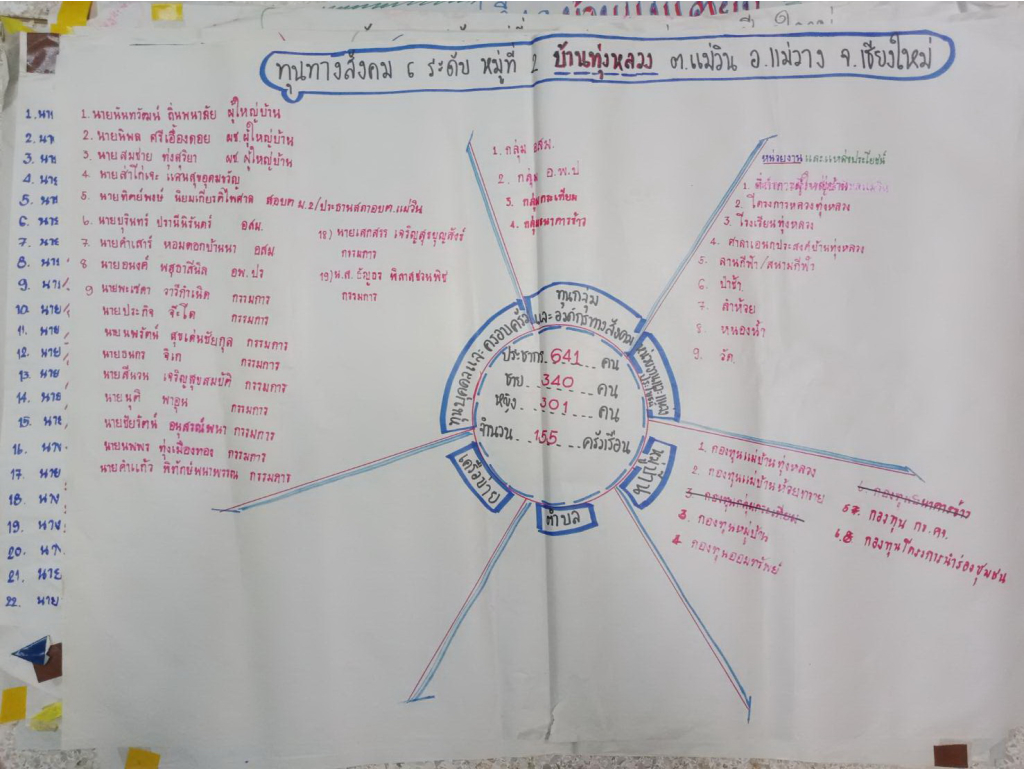 ทุนทางสังคม 6 ระดับ หมู่ที่ 2 บ้านทุ่งหลวง ต.แม่วิน อ.แม่วาง จ.เชียงใหม่
1. นายนันทวัฒน์ ถิ่นพนาลัย ผู้ใหญ่บ้าน
2. นายนิพล ศรีเอื้องดอย ผช ผู้ใหญ่บ้าน
3. นายสมชาย ทุ่งสุริยา ผช ผู้ใหญ่บ้าน
4. แสนสุขอุดมขวัญ
5. นายทิตย์พงษ์ นิยมเกียรติไพศาล สอบต ม.2/ประธานสภาอบต.แม่วิน
6. นายบุรินทร์ ปรานีนิรันดร์ อสม.
7. นายคำเสาร์ หอมดอกบ้านนา อสม
8 นายอนงค์ พสุธาสีนิล อพ.ปร
9 นายพะเชดา วารีกำเนิด กรรมการ
นายประกิจ จ๊ะโด กรรมการ
นายนพรัตน์ สุขเด่นชัยกุล กรรมการ
นายธนกร จิเก กรรมการ
นายสีนวน เจริญสุขสมบัติ กรรมการ
นายนุศิ พาอุน กรรมการ
นายชัยรัตน์ อนุสรณ์พนา กรรมการ
นายนพพร ทุ่งเมืองทอง กรรมการ
นายคำแก้ว พิทักษ์พนาพรรณ กรรมการ
18) นายเศกสรร เจริญสุขบุญสังร์
กรรมการ
19) น.ส. ธัญธร
กรรมการ
1.นาย
2. นา
3. นาย
4. นาย
5. นาย
6. นาย
7. นาย
8. นาย
9. นาง
10. นาย
11. นาย
12. นาย
13. นาย
14. นาย
15. นาย
16. นาง
17. นาย
18. นาง
19. นาง
20. นา
21. นาย
22. นาย
1. กลุ่ม อสม.
2. กลุ่ม อ.พ.ป
3. กลุ่มกระเทียม
4. กลุ่มธนาคารข้าว
หน่วยงาน และแหล่งประโยชน์
1. ที่ทำการผู้ใหญ่บ้าน
2. โครงการหลวงทุ่งหลวง
3. โรงเรียนทุ่งหลวง
4. ศาลาเอนกประสงค์บ้านทุ่งหลวง
5. ลานกีฬา/สนามกีฬา
6. ป่าช้า
7. ลำห้วย
8. หนองน้ำ
9. วัด.
ทุนบุคคลและครอบครัว
ทุนกลุ่ม
และองค์กรทางสังคม
ประชากร. 641 คน
ชาย 340 คน
หญิง 301 คน
จำนวน 155 ครัวเรือน
เครือข่าย
ตำบล
หมู่บ้าน
1. กองทุนแม่บ้านทุ่งหลวง
2. กองทุนแม่บ้านห้วยทราย
3. กองทุนกลุ่มกระเทียม
3. กองทุนหมู่บ้าน
4 กองทุนออมทรัพย์
6. กองทุนธนาคารข้าว
5 7. กองทุน กข.คจ.
6.8 กองทุนโครงการนำร่องชุมชน